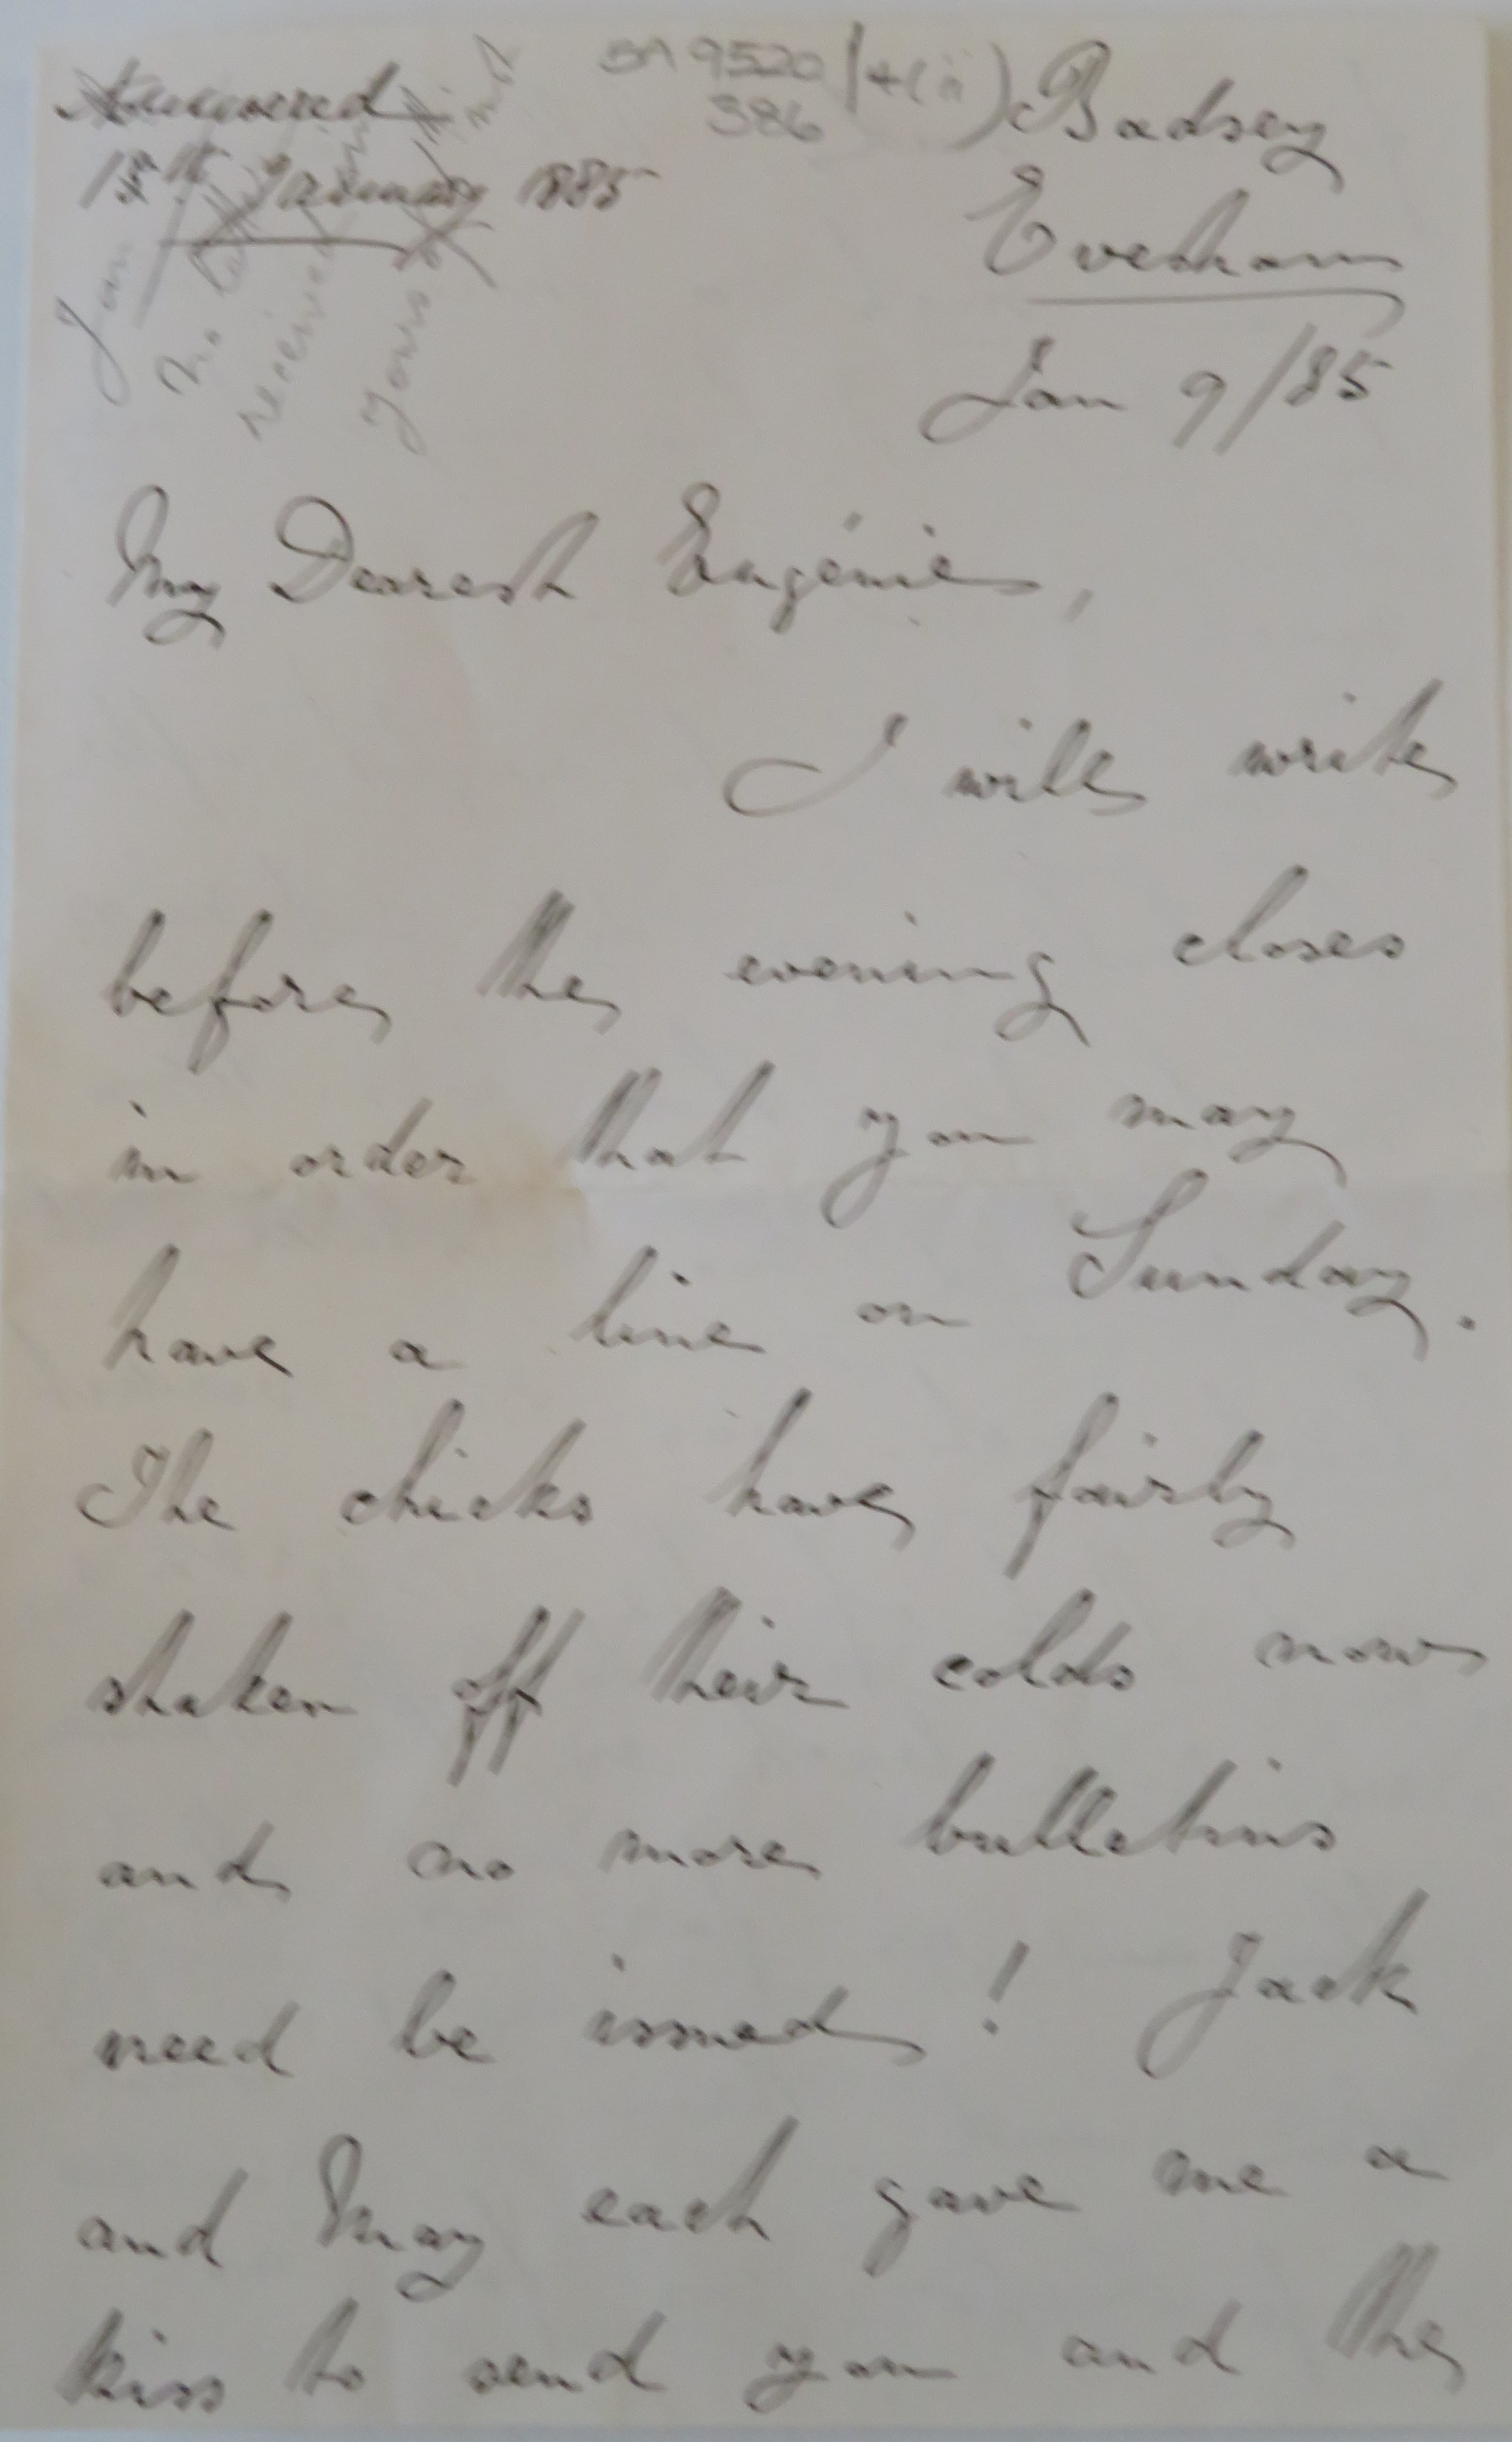 Answered
15th January 1885
BA 9520/4(ii)
386
Badsey
Evesham
Jan 9/85
Jan
no
received
yours
My Dearest Eugénie,
I will write
before the evening closes
in order that you may
have a line on Sunday.
The chicks have fairly
shaken off their colds now
and no more bulletins
need be issued! Jack
and May each gave me a
kiss to send you and the